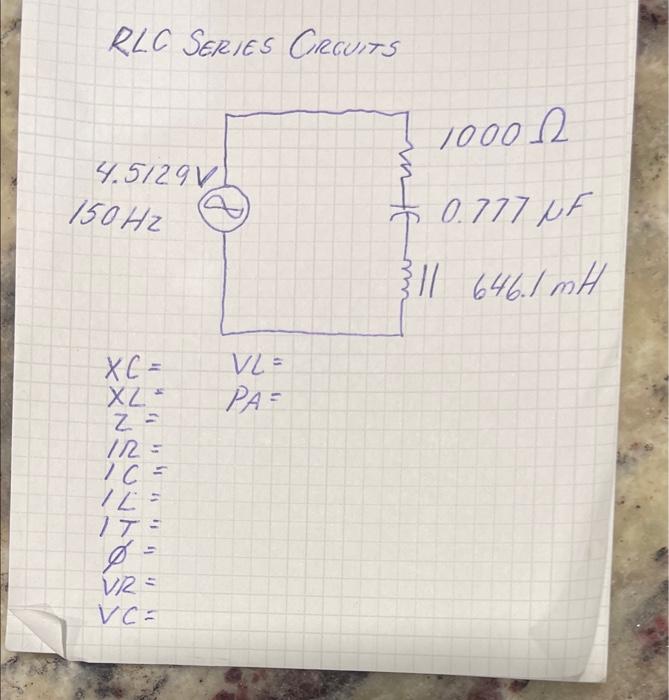 RLC SERIES CIRCUITS
1000 Ω
4.5129V
150 Hz
0.777 µF
646.1 mH
XC =
VL =
XL =
PA =
Z =
IR =
IC =
IL =
IT =
Ø =
VR =
VC =